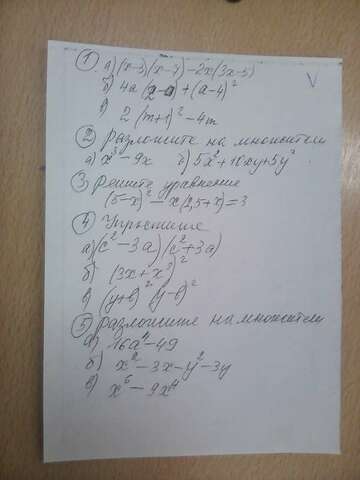 ① а) (x-3)(x-7)-2x(3x-5)
б) 4a(2-a)+(a-4)²
в) 2(m+1)²-4m
② Разложите на множители
а) x³-9x б) 5x²+10xy+5y²
③ Решите уравнение
(5-x)²-x(2,5+x)=3
④ Упростите
а) (c²-3a)(c²+3a)
б) (3x+x³)²
в) (y+b)²(y-b)²
⑤ Разложите на множители
а) 16a⁴-49
б) x²-3x-y²-3y
в) x⁶-9x⁴
V